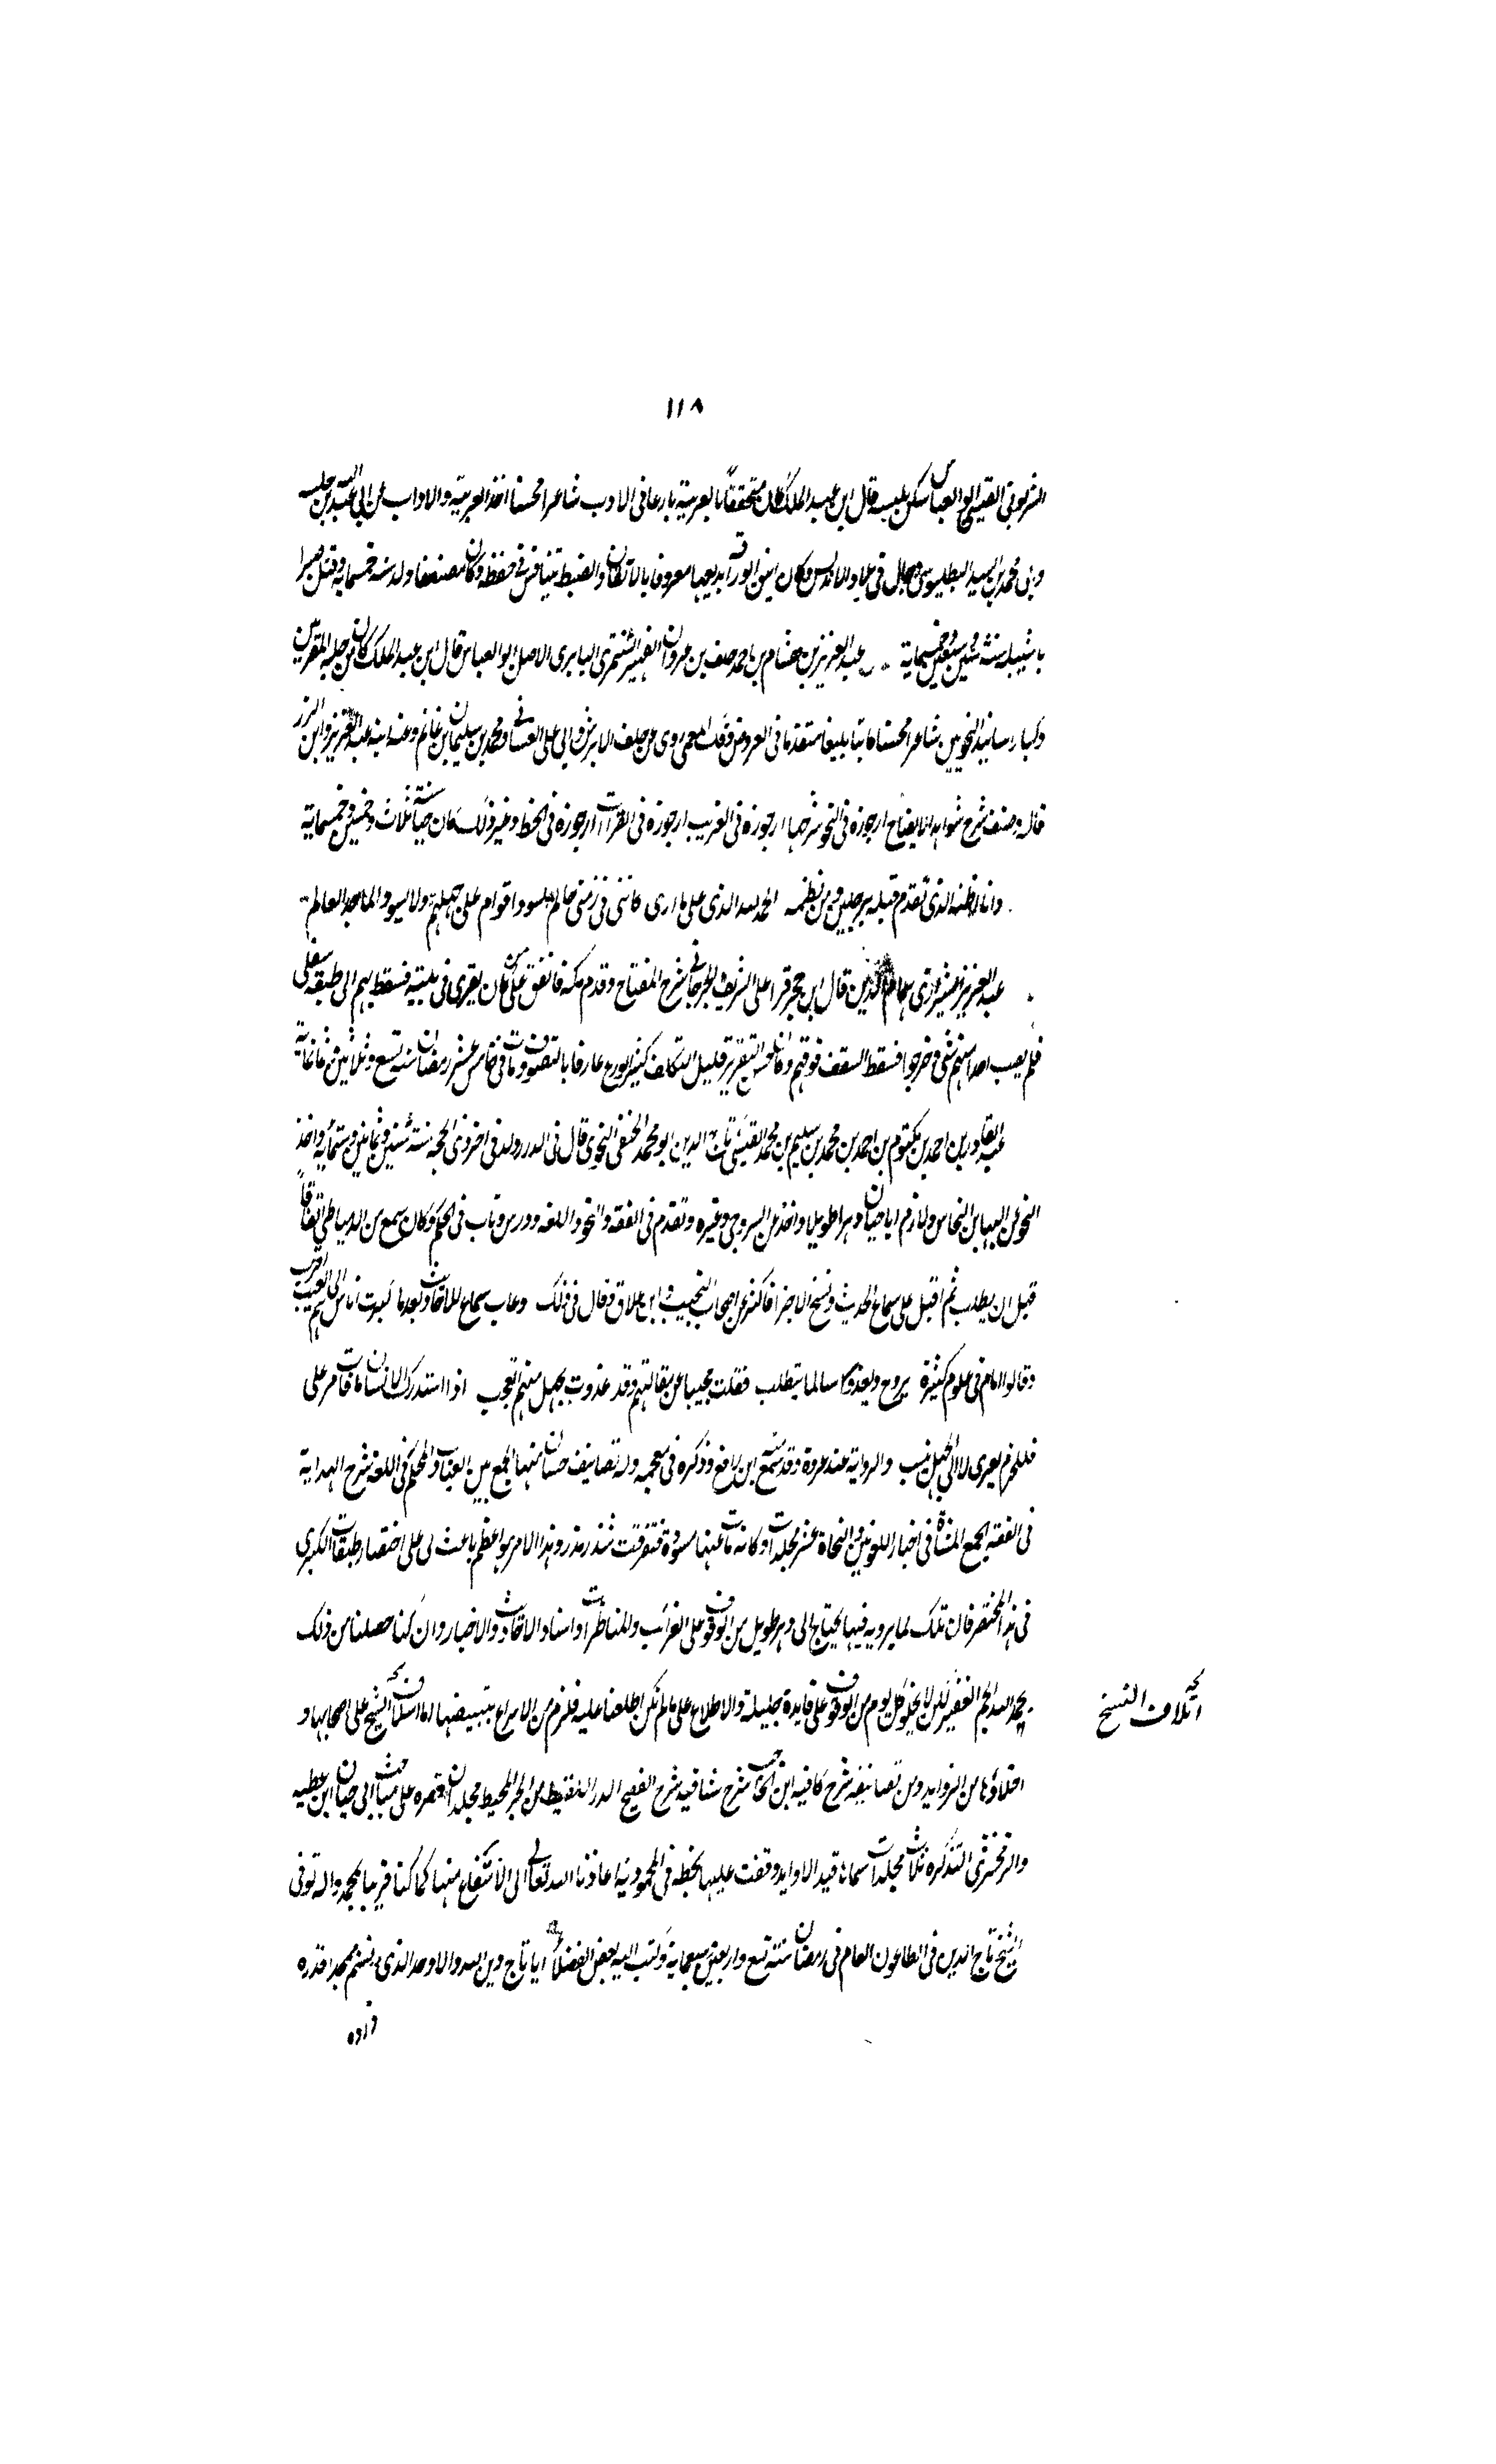 ١١٨
القيسى ابو العباس سكن بلبيسه قال ابن عبد الملك كان متحققا بالعربية بارعا فى الادب شاعرا محسنا اخذ العربية والاداب عن ابى عبد الله بن
وبنى محمد بن السيد البطليوسى وجال فى بلاد الاندلس وكان انيق الوراقة بديعها معروفا بالاتقان والضبط يتنافس فى خطه وكان مصنفا ولد سنة خمسماية وقتل صبرا
باشبيلية سنة وسبعين وخمسماية عبد العزيز بن هشام بن احمد خلف بن مروان الفهرى الشنتمرى اليابرى الاصل ابو العباس قال ابن عبد الملك كان من جلة المقرئين
وكبار اساتيذ النحويين شاعرا محسنا كاتبا بليغا متقدما فى العروض وفك المعمى روى عن خلف الابرش وابى على الغسانى ومحمد بن سليمان بن غانم وعنه ابنه عبد العزيز وابن الزر
قاله وصنف شرح شواهد الايضاح ارجوزة فى النحو شرحها ارجوزة فى الغريب ارجوزة فى القراات ارجوزة فى الخط وغير ذلك كان حيا سنة ثلاث وخمسين وخمسماية
وانا اظنه الذى تقدم قبله برجلين ومن نظمه الحمد لله الذى على ما ارى كاننى فى زمنى حالم يسود اقوام على جهلهم ولا يسود الماجد العالم
عبد العزيز الشيرازى همام الدين قال ابن حجر قرا على الشريف الجرجانى شرح المفتاح وقدم مكة فاتفق انه كان يقرى فى بيته فسقط بهم الى طبقة سفلى
فلم يصب احدا منهم شى وخرجوا فسقط السقف فوقهم وكان حسن التقرير قليل التكلف كثير الورع عارفا بالتصوف ومات فى خامس عشر رمضان سنة تسع وثلاثين وثمانماية
عبد القادر بن احمد بن مكتوم بن احمد بن محمد بن سليم بن محمد القيسى تاج الدين ابو محمد الحنفى النحوى قال فى الدرر ولد فى اخر ذى الحجة سنة ثنتين وثمانين وستماية واخذ
النحو عن البها بن النحاس ولازم ابا حيان دهرا طويلا واخذ عن السروجى وغيره وتقدم فى الفقه والنحو واللغه ودرس وناب فى الحكم وكان سمع من الدمياطى اتفاقا
قبل ان يطلب ثم اقبل على سماع الحديث ونسخ الاجزا فاكثر عن اصحاب النجيب وابن علاق وقال فى ذلك وعاب سماعى للاحاديث بعدما كبرت اناس هم الى العيب اقرب
وقالوا امام فى علوم كثيرة يروح ويغدو سامعا يتطلب فقلت مجيبا عن مقالتهم وقد غدوت بجهل منهم اتعجب اذا استدرك الانسان ما فات من على
فللحزم يعزى لا الى الجهل ينسب والرواية عنه عزوة وقد سمع منه ابن رافع وذكره فى معجمه وله تصانيف حسان منها الجمع بين العباب والمحكم فى اللغة شرح الهداية
فى الفقه الجمع المتناه فى اخبار اللغويين والنحاة عشر مجلدات وكانه مات عنها مسودة فتفرقت شذر مذر وهذا الامر هو اعظم باعث لى على اختصار طبقات الكبرى
فى هذا المختصر فان تلك لما يروى فيها يحتاج الى دهر طويل من الوقوف على الغرائب والمناظرات واسناد الاحاديث والاخبار وان كنا حصلنا من ذلك
بحمد الله الجم الغفير لكن لا يخلو كل يوم من الوقوف على فايدة جليلة والاطلاع على ما لم نكن اطلعنا عليه فلزم من الاسراع بتبييضها اما اتلاف النسخ على اصحابها و
اتلاف النسخ
اخلاؤها من الزوايد ومن تصانيفه شرح كافية ابن الحاجب شرح شافيه شرح الفصيح الدر اللقيط من البحر المحيط مجلدان قصره على مباحث ابى حيان ابن عطية
والزمخشرى التذكرة ثلاث مجلدات سماها قيد الاوابد وقفت عليها بخطه فى المحمودية اعاذنا الله تعالى الى الانتفاع منها كما كنا قريبا بمحمد واله توفى
الشيخ تاج الدين فى الطاعون العام فى رمضان سنة تسع واربعين وسبعماية وكتب اليه بعض الفضلا ايا تاج دين الله والاوحد الذى تسنم مجدا قدره